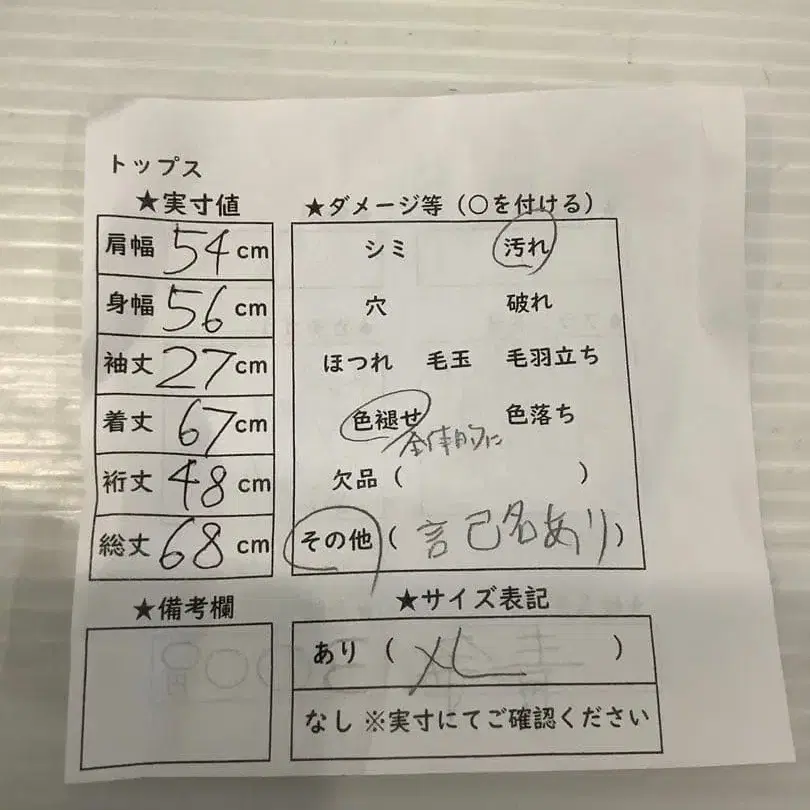 トップス
★実寸値
肩幅 54 cm
身幅 56 cm
袖丈 27 cm
着丈 67 cm
裄丈 48 cm
総丈 68 cm
★備考欄
★ダメージ等（○を付ける）
シミ 汚れ
穴 破れ
ほつれ 毛玉 毛羽立ち
色褪せ 色落ち
全体的に
欠品（ ）
その他（記名あり）
★サイズ表記
あり（ XL ）
なし ※実寸にてご確認ください